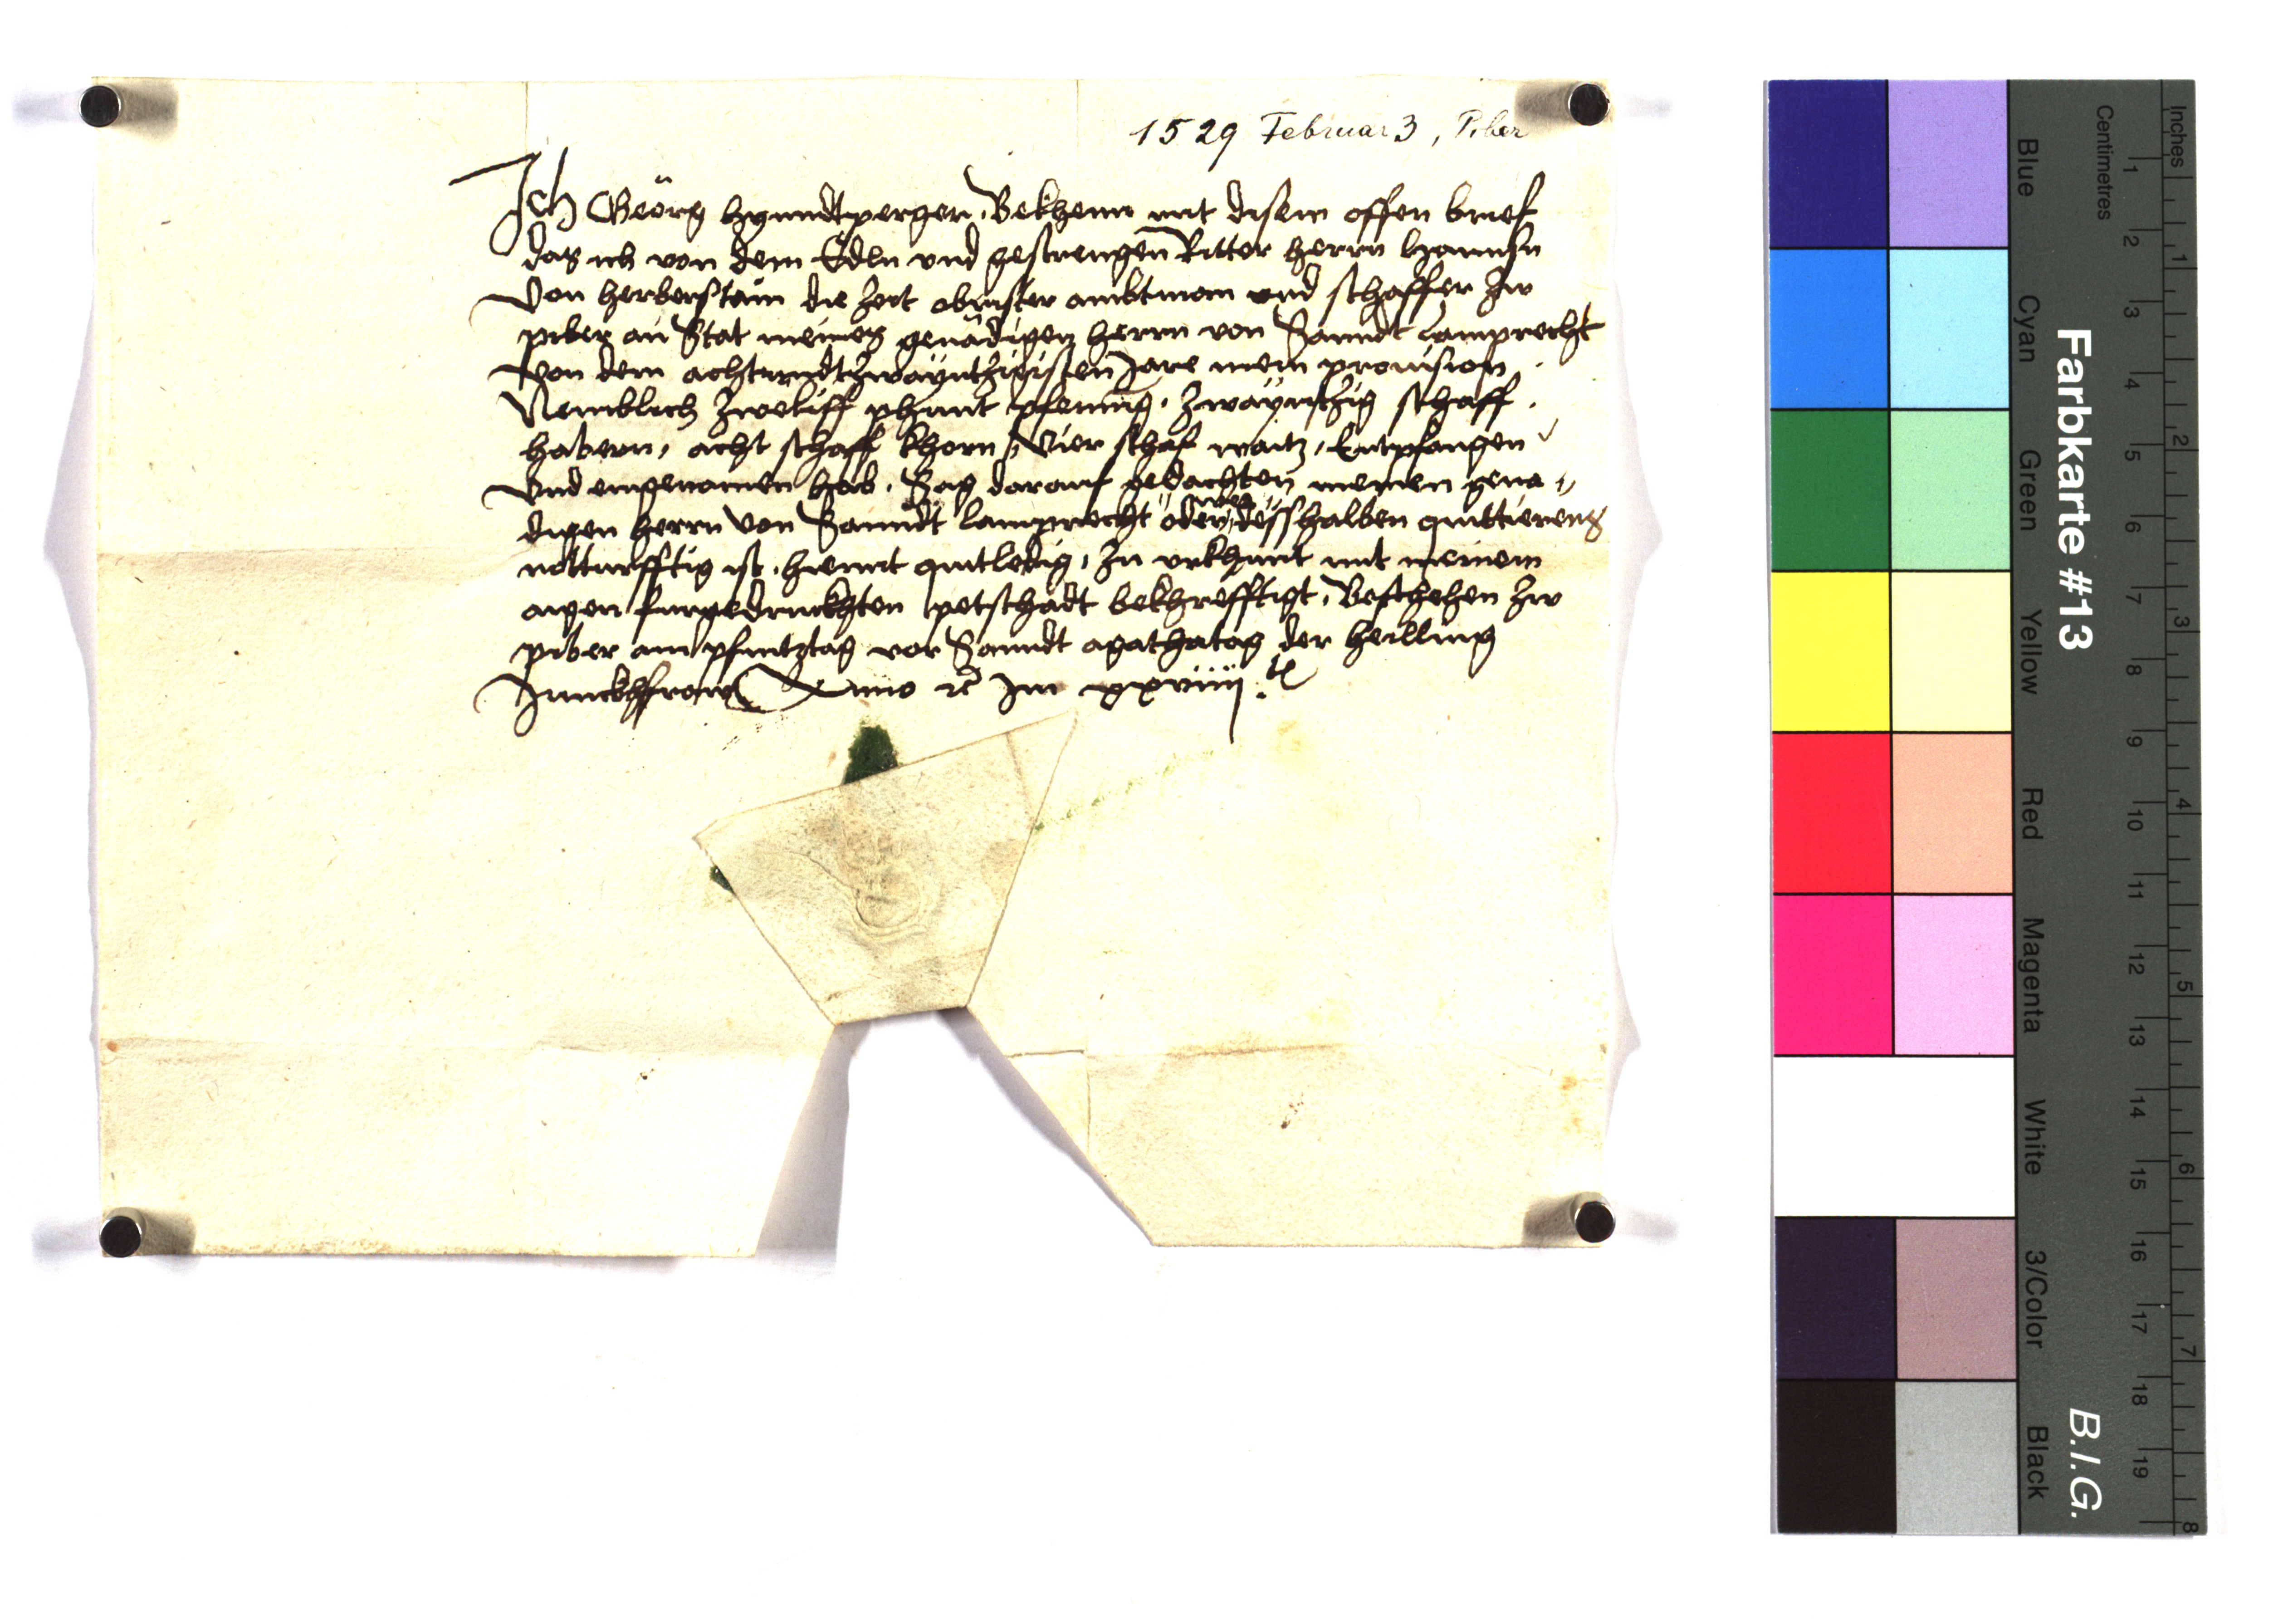 1529 Februar 3, Piber
Ich Geörg hyundtperger, Bekhenn mit disem offen brief
das ich von dem Edln vnd gestrengen Ritter herrn hannsn
Von herberstain die Zeit obrister ambtman vnd schaffer Zw
piber an Stat meines genädigen herrn von Sanndt lamprecht
Von dem achtvndtzwäyntzigisten Jare mein prouision
Nemblich Zweliff phunt pfening, Zwäyntzig schaff
habern, acht schaff khorn, Vier schaf waitz, Entpfangen
Vnd eingenomen hab. Sag darauf gedachten meinen gena„
digen herrn Von Sanndt lamprecht oder wer desshalben quittierens
notturfftig ist, hiemit quitledig, Zu vrkhunt mit meinem
aigen furgedruckhten petschadt bekhrefftigt, Beschehen Zw
piber am pfintztag vor Sanndt agathatag der heilling
Junckhfrawn Anno rc Im xxviiij
Farbkarte #13
B.I.G.
Blue
Cyan
Green
Yellow
Red
Magenta
White
3/Color
Black
Centimetres
1 2 3 4 5 6 7 8 9 10 11 12 13 14 15 16 17 18 19
Inches
1 2 3 4 5 6 7 8